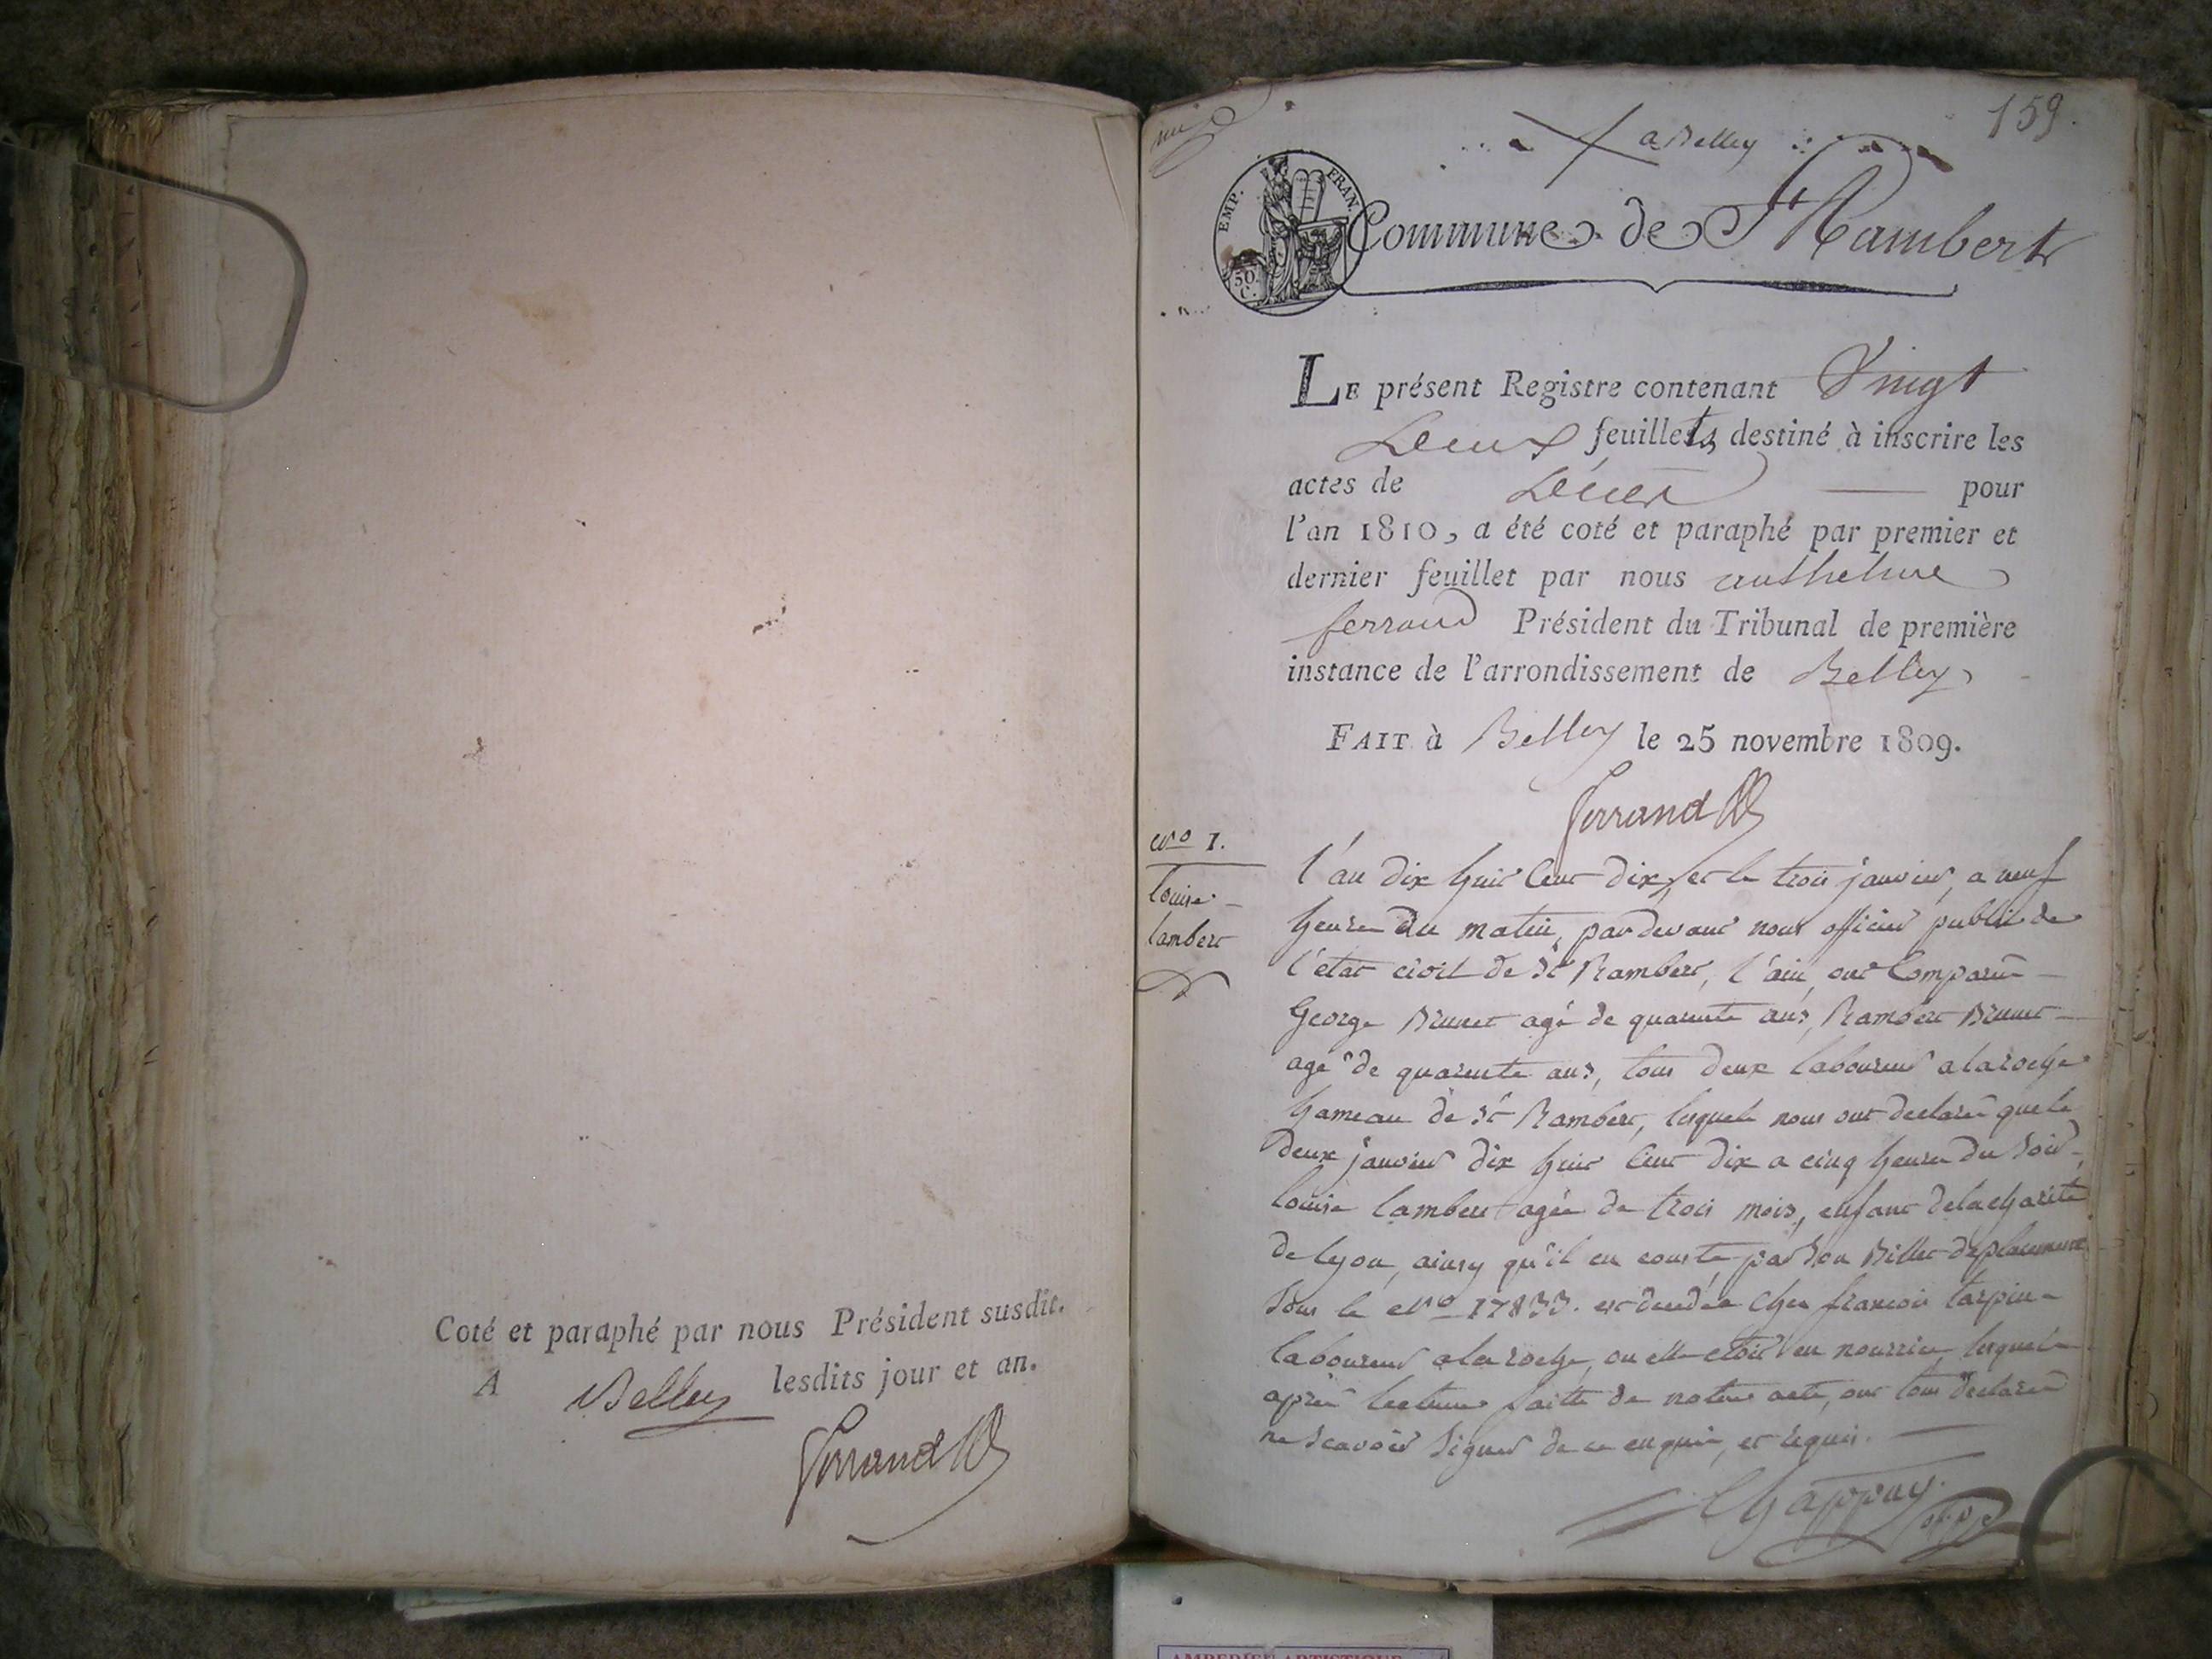 Coté et paraphé par nous Président susdit.
A Belley lesdits jour et an.
Ferrand
159.
a Belley
EMP. FRAN.
50 C.
Commune de St Rambert
LE présent Registre contenant Vingt
Deux feuillets destiné à inscrire les
actes de Décès pour
l'an 1810, a été coté et paraphé par premier et
dernier feuillet par nous anthelme
ferrand Président du Tribunal de première
instance de l'arrondissement de Belley
FAIT à Belley le 25 novembre 1809.
Ferrand
No 1.
louise
lambert
l'an dix huit Cent dix, et le trois janvier, a neuf
heures du matin, pardevant nous officier public de
l'etat civil de St Rambert, l'ain, ont Comparu
George Brunet agé de quarente ans, Rambert Brunet
agé de quarente ans, tous deux laboureurs a laroche
hameau de St Rambert, lesquels nous ont declaré que le
deux janvier dix huit Cent dix a cinq heures du soir,
louise lambert agée de trois mois, enfant de la charité
de lyon, ainsy qu'il en conste par son Billet de placement
sous le No 17833. est decedée chez francois tarpin
laboureur a la roche, ou elle etoit en nourrice, lesquels
après lecture faitte de notre acte, ont tous declaré
ne scavoir signer de ce enquis, et requis.
Chappuy
of. p.
AMBERIEU ARTISTIQUE